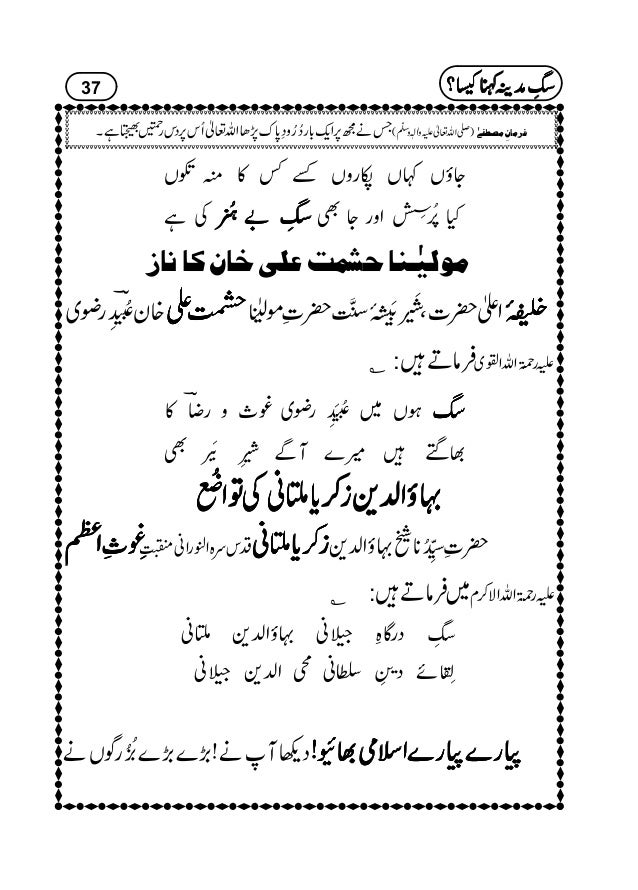 سگِ مدینہ کہنا کیسا؟
37
فرمانِ مصطفےٰ (صلی اللہ تعالیٰ علیہ والہ وسلّم) جس نے مجھ پر ایک بار دُرُودِ پاک پڑھا اللہ تعالیٰ اُس پر دس رحمتیں بھیجتا ہے۔
جاؤں کہاں پکاروں کسے کس کا منہ تکوں
کیا پُرسِش اور جا بھی سگِ بے ہُنر کی ہے
مولیٰنا حشمت علی خان کا ناز
خلیفۂ اعلیٰ حضرت، شیرِ بَیشۂ سنّت حضرتِ مولیٰنا حشمت علی خان عُبیدِ رضوی
علیہ رحمۃ اللہ القوی فرماتے ہیں: ؎
سگ ہوں میں عُبَیدِ رضوی غوث و رضا کا
بھاگتے ہیں میرے آگے شیرِ بَبر بھی
بہاؤالدین زکریا ملتانی کی تواضُع
حضرتِ سیِّدُنا شیخ بہاؤالدین زکریا ملتانی قدس سرہ النورانی منقبتِ غوثِ اعظم
علیہ رحمۃ اللہ الاکرم میں فرماتے ہیں: ؎
سگِ درگاہِ جیلانی بہاؤالدین ملتانی
لِقائے دینِ سلطانی محی الدین جیلانی
پیارے پیارے اسلامی بھائیو! دیکھا آپ نے! بڑے بڑے بُزُرگوں نے